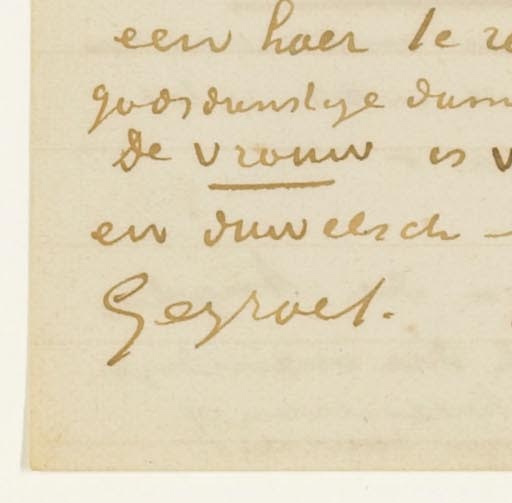 een hoer te
godsdienstige
De vrouw is
en duivelsch –
Gegroet.